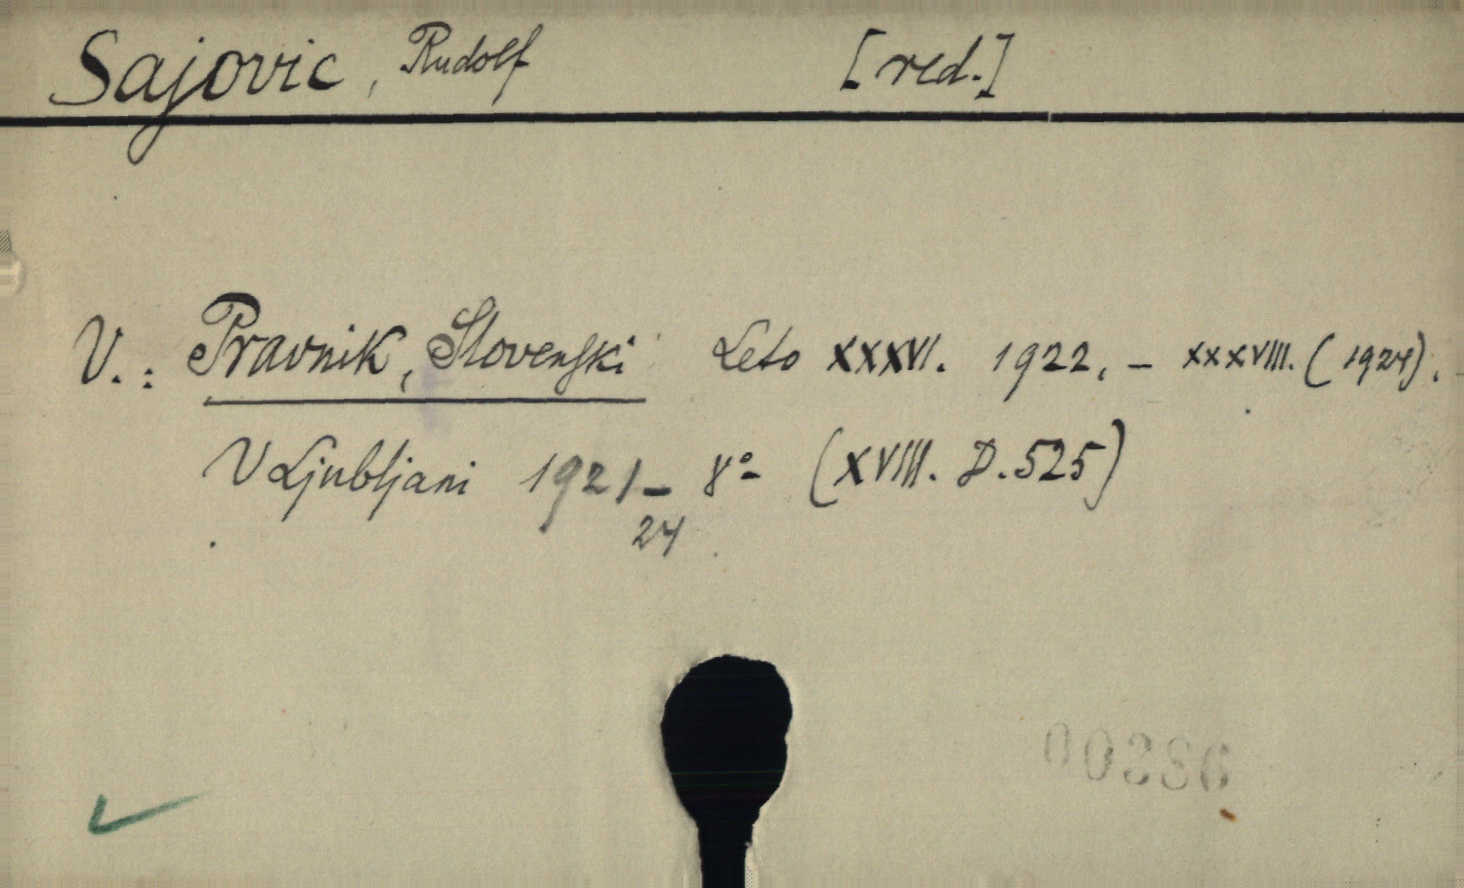 Sajovic, Rudolf [red.]
V.: Pravnik, Slovenski Leto XXXVI. 1922. – XXXVIII. (1924).
V Ljubljani 1921– 8° (XVIII. D. 525)
24